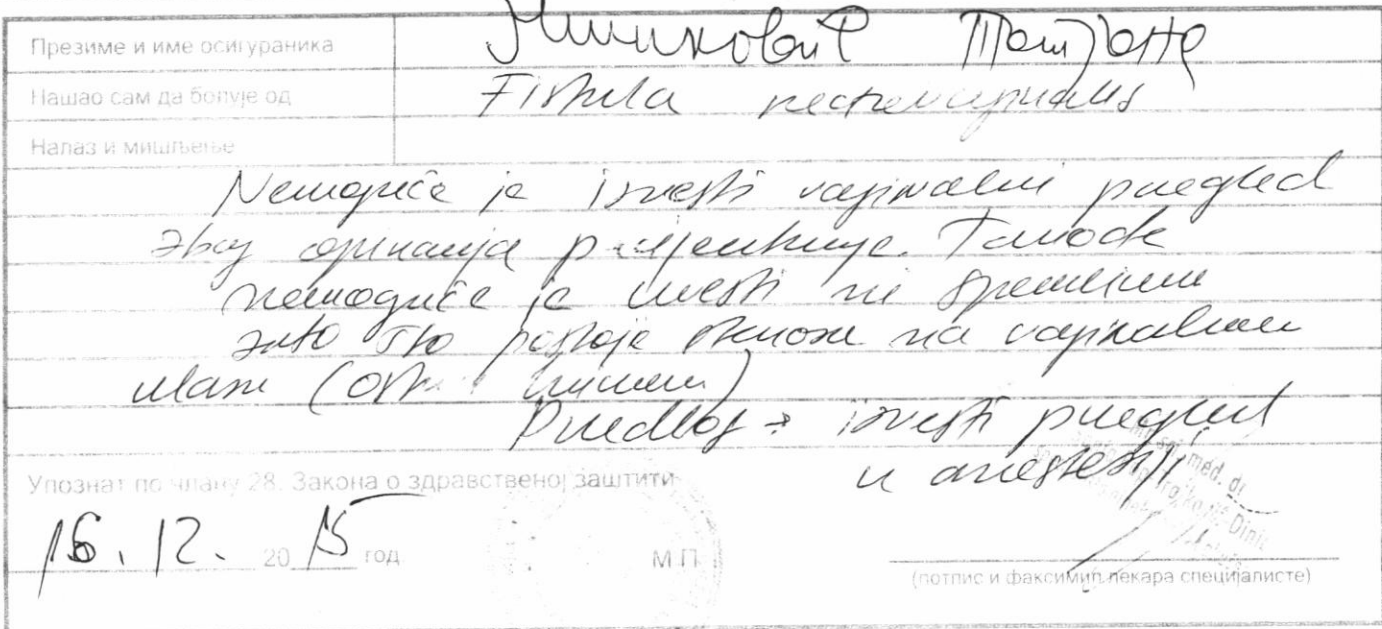 Презиме и име осигураника Татјана
Нашао сам да болује од Fistula rectovaginalis
Налаз и мишљење
Nemoguće je izvesti vaginalni pregled
zbog opiranja pacijentkinje. Takođe
nemoguće je uvesti ni spekulum
zato što postoje stenoze na vaginalnom
ulazu (
Predlog → izvesti pregled
u anesteziji
Упознат по члану 28. Закона о здравственој заштити
16. 12. 2015 год М.П.
(потпис и факсимил лекара специјалисте)